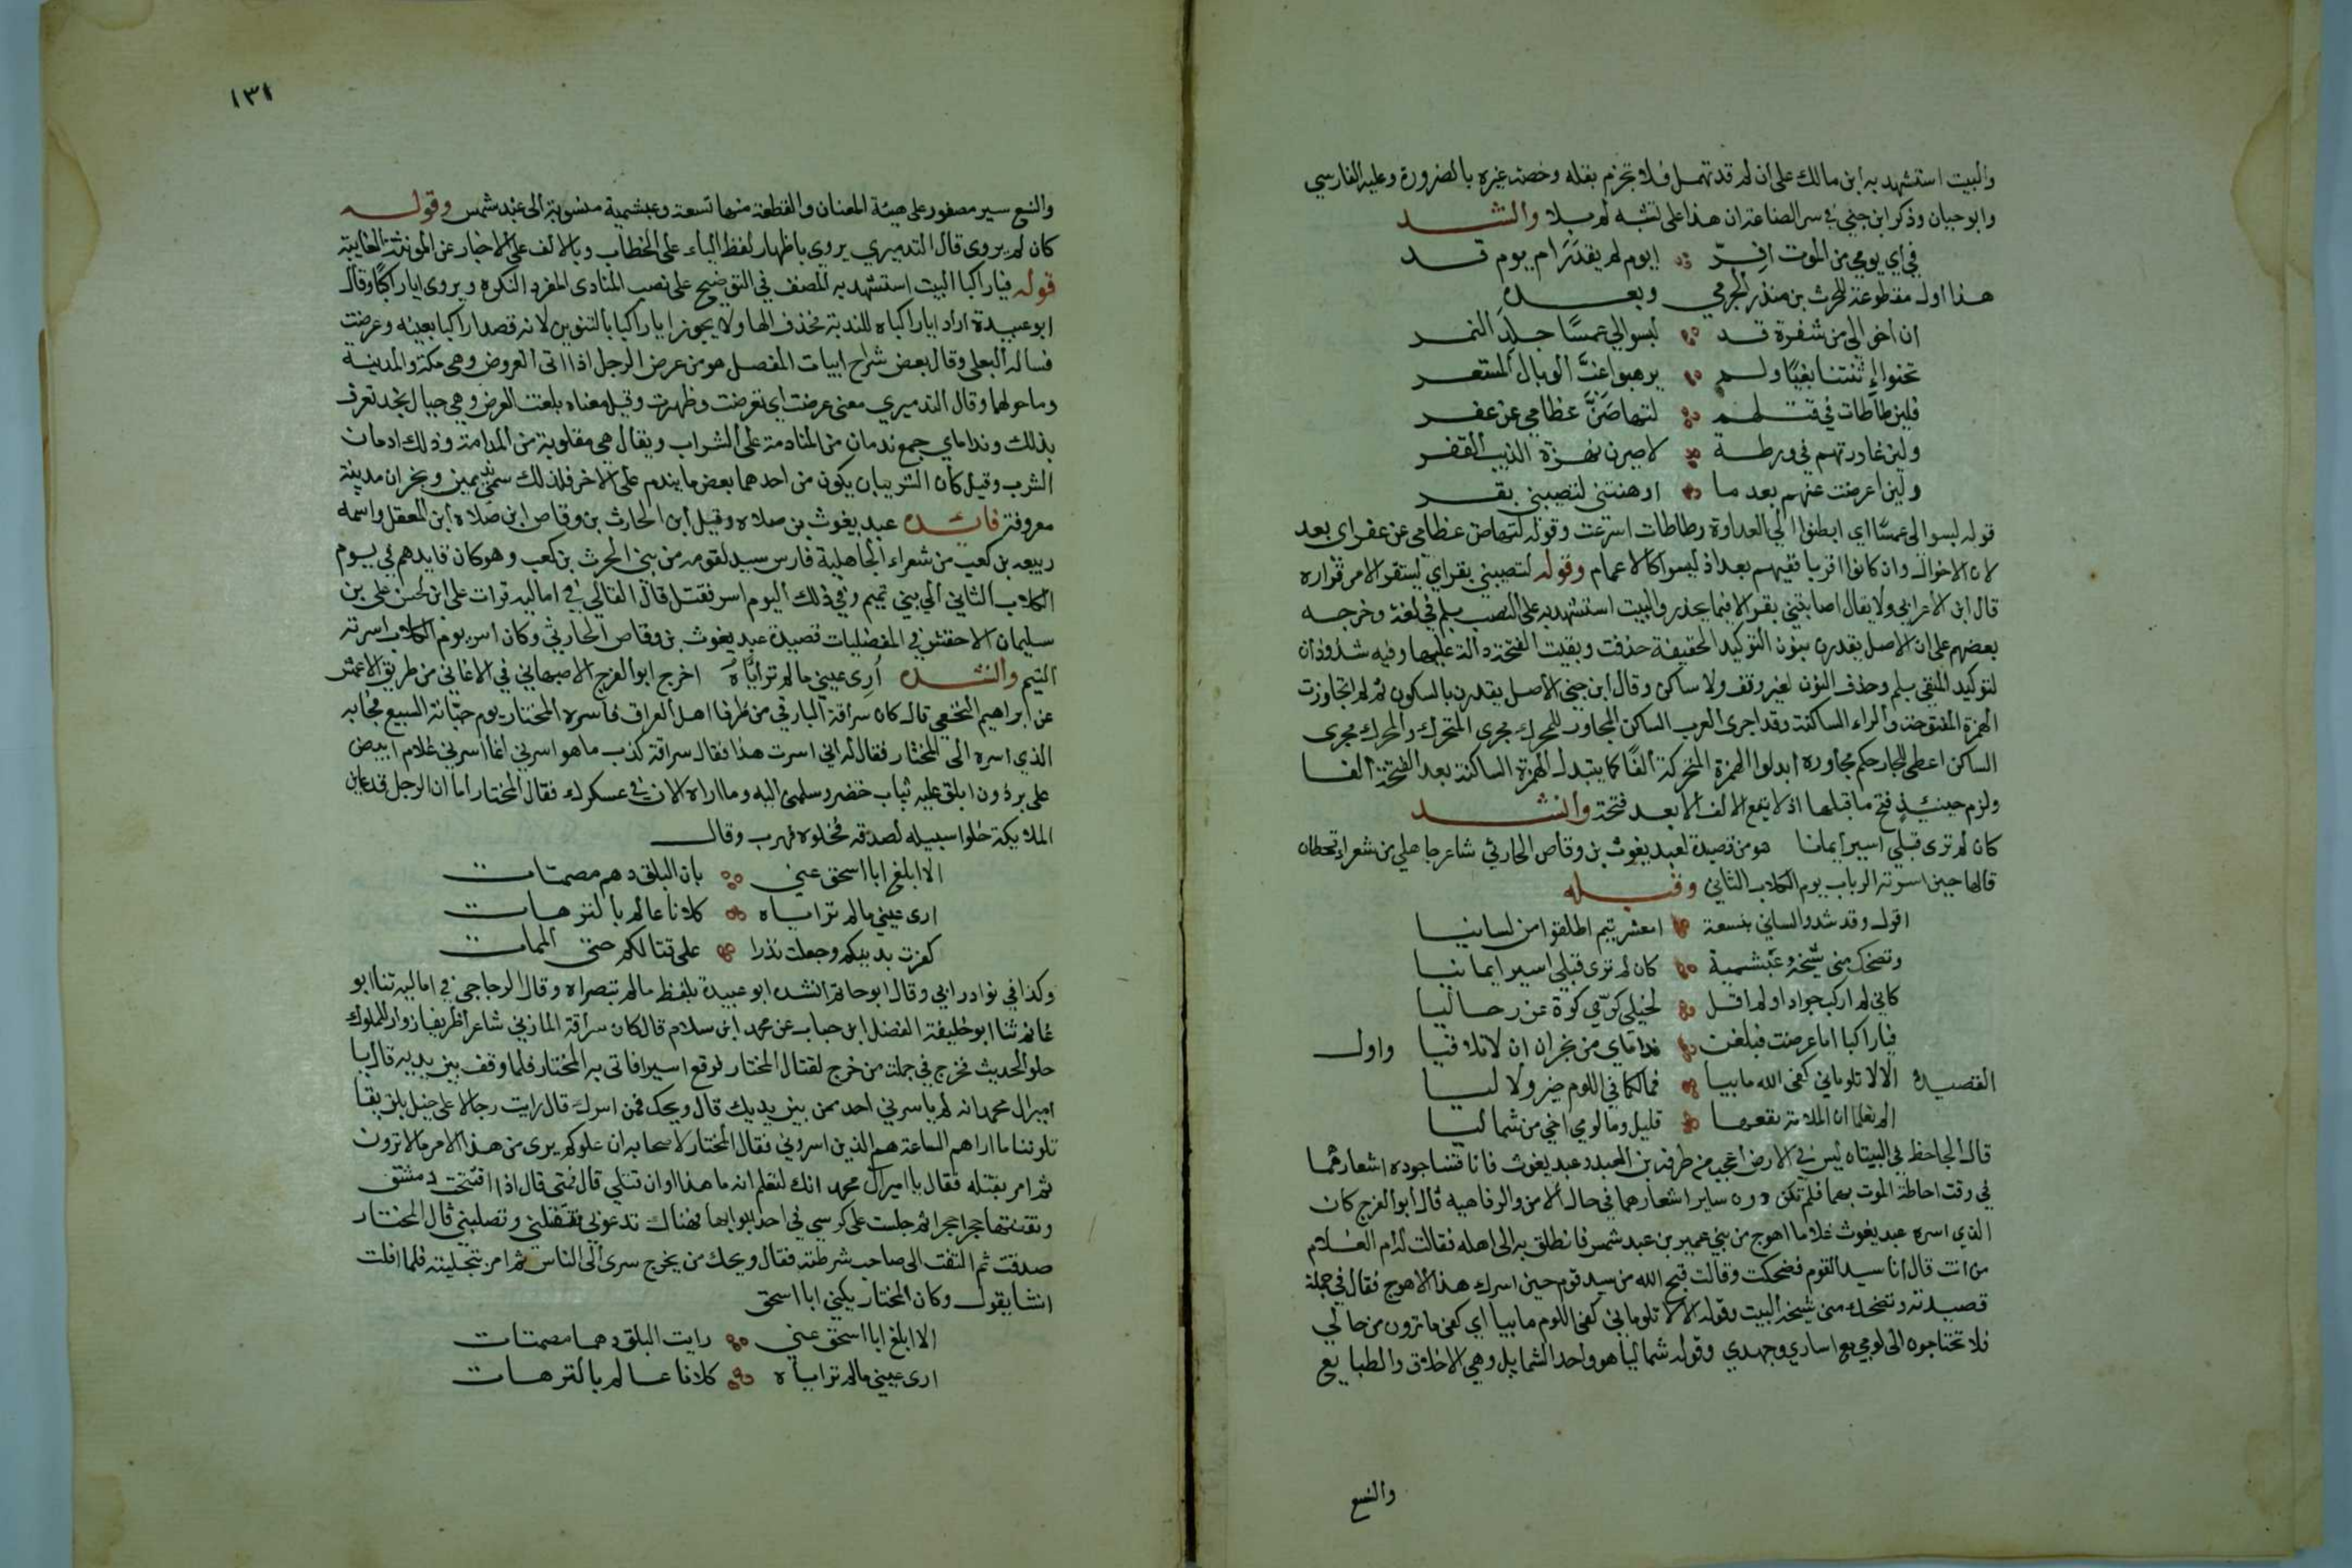 والبيت استشهد به ابن مالك على ان لم قد تهمل فلا تجزم بقله وخصه غيره بالضرورة وعليه الفارسي
وابو حيان وذكر ابن جني في سر الصناعة ان هذا على تشبه لم بلا وانشد
في اي يومي من الموت افر ايوم لم يقدر ام يوم قدر
هذا اول مقطوعة للحرث بن منذر الجرمي وبعده
ان اخوالي من شقرة قد لبسوا لي عمسا جلد النمر
نحتوا اثلتنا بغيا ولم يرهبوا غب الوبال المستعر
فلين طأطات في قتلهم لتهاضن عظامي عن عفر
ولين غادرتهم في ورطة لاصيرن نهزة الذيب القفر
ولين اعرضت عنهم بعد ما اوهنتني لتصيبني بقر
قوله لبسوا لي عمسا اي ابطنوا لي العداوة وطاطات اسرعت وقوله لتهاض عظامي عن عفر اي بعد
لان الاخوال وان كانوا اقربا ففيهم بعد اذ ليسوا كالاعمام وقوله لتصيبني بقر اي ليستقر الامر قراره
قال ابن الاعرابي ولا يقال اصابتني بقر الا فيما يحذر والبيت استشهد به على النصب بلم في لغة وخرجه
بعضهم على ان الاصل يقدرن بنون التوكيد الخفيفة حذفت وبقيت الفتحة دالة عليها وفيه شذوذان
لتوكيد المنفي بلم وحذف النون لغير وقف ولا ساكن وقال ابن جني الاصل يقدر بالسكون ثم لما تجاوزت
الهمزة المفتوحة والراء الساكنة وقد اجرى العرب الساكن المجاور للمحرك مجرى المتحرك والمحرك مجرى
الساكن اعطى للجار حكم مجاوره ابدلوا الهمزة المتحركة الفا كما يتبدل الهمزة الساكنة بعد الفتحة الفا
ولزم حينئذ فتح ما قبلها اذ لا يقع الالف الا بعد فتحة وانشد
كان لم ترى قبلي اسيرا يمانيا هو من قصيدة لعبد يغوث بن وقاص الحارثي شاعر جاهلي من شعراء قحطان
قالها حين اسرته الرباب يوم الكلاب الثاني وقبله
اقول وقد شدوا لساني بنسعة امعشر تيم اطلقوا من لسانيا
وتضحك مني شيخة عبشمية كان لم ترى قبلي اسيرا يمانيا
كاني لم اركب جوادا ولم اقل لخيلي كرّي كرة عن رحاليا
فيا راكبا اما عرضت فبلغن نداماي من نجران ان لا تلاقيا واول
القصيدة الا لا تلوماني كفى الله ما بيا فما لكما في اللوم خير ولا ليا
الم تعلما ان الملامة نفعها قليل وما لومي اخي من شماليا
قال الجاحظ في البيتاه ليس في الارض اعجب من طرفة بن العبد وعبد يغوث فانا قسنا جوده اشعارهما
في وقت احاطة الموت بهما فلم تكن دون ساير اشعارهما في حال الامن والرفاهيه قال ابو الفرج كان
الذي اسره عبد يغوث غلاما اهوج من بني عمير بن عبد شمس فانطلق به الى اهله فقالت له ام الغلام
من انت قال انا سيد القوم فضحكت وقالت قبح الله من سيد قوم حين اسرك هذا الاهوج فقال في جملة
قصيدته وتضحك مني شيخة البيت وقوله الا لا تلوماني كفى اللوم ما بيا اي كفى ما ترون من حالي
فلا تحتاجوه الى لومي مع اساري وجهدي وقوله شماليا هو واحد الشمايل وهي الاخلاق والطبايع
والنسع
١٣١
والنسع سير مضفور على هيئة العنان والقطعة منها نسعة وعبشمية منسوبة الى عبد شمس وقوله
كان لم يروى قال التدميري يروي باظهار لفظ الياء على الخطاب وبالالف على الاخبار عن المونثة الغايبة
قوله فيا راكبا البيت استشهد به المصنف في التوضيح على نصب المنادى المفرد النكرة ويروى ايا راكبا وقال
ابو عبيدة اراد ايا راكباه للندبة فحذف الها ولا يجوز ايا راكبا بالتنوين لانه قصد راكبا بعينه وعرضت
فساله البعلي وقال بعض شراح ابيات المفصل هو من عرض الرجل اذا اتى العروض وهي مكة والمدينة
وما حولهما وقال التدميري معنى عرضت اي تعرضت وظهرت وقيل معناه بلغت العرض وهي جبال نجد تعرف
بذلك ونداماي جمع ندمان من المنادمة على الشراب ويقال هي مقلوبة من المدامنة وذلك ادمان
الشرب وقيل كان الشريبان يكون من احدهما بعض ما يندم على الاخر فلذلك سمي نديمين ونجران مدينة
معروفة فائده عبد يغوث بن صلاه وقيل ابن الحارث بن وقاص ابن صلاه ابن المعقل واسمه
ربيعه بن كعب من شعراء الجاهلية فارس سيد لقومه من بني الحرث بن كعب وهو كان قايدهم في يوم
الكلاب الثاني الي بني تميم وفي ذلك اليوم اسر فقتل قال القالي في اماليه قرات على ابن الحسن على بن
سليمان الاخفش في المفضليات قصيدة عبد يغوث بن وقاص الحارثي وكان اسر يوم الكلاب اسرته
التيم وانشده أري عيني ما لم ترأياه اخرج ابو الفرج الاصبهاني في الاغاني من طريق الاعمش
عن ابراهيم النخعي قال كان سراقة البارقي من ظرفا اهل العراق فاسره المختار يوم جبّانة السبيع فجا به
الذي اسره الى المختار فقال له اني اسرت هذا فقال سراقة كذب ما هو اسرني انما اسرني غلام ابيض
على برذون ابلق عليه ثياب خضر وسلمني اليه وما اراه الان في عسكرك فقال المختار اما ان الرجل قد عاين
الملايكة خلوا سبيله لصدقه فخلوه فهرب وقال
الا ابلغ ابا اسحق عني بان البلق دهم مصمتات
ارى عيني ما لم ترايـاه كلانا عالم بالترهات
كفرت بدينكم وجعلت نذرا على قتالكم حتى الممات
وكذا في نوادر ابي وقال ابو حاتم انشده ابو عبيدة بلفظ ما لم تبصراه وقال الزجاجي في اماليه ثنا ابو
غانم ثنا ابو خليفة الفضل ابن حباب عن محمد ابن سلام قال كان سراقة المازني شاعرا ظريفا زوار للملوك
حلو الحديث فخرج في جملة من خرج لقتال المختار فوقع اسيرا فاتى به المختار فلما وقف بين يديه قال يا
امير ال محمد انه لم ياسرني احد ممن بين يديك قال ويحك فمن اسرك قال رايت رجالا على خيل بلق يقا
تلوننا ما اراهم الساعة هم الذين اسروني فقال المختار لاصحابه ان عدوكم يرى من هذا الامر ما لا ترون
ثم امر بقتله فقال يا امير ال محمد انك لتعلم انه ما هذا اوان تقتلني قال فمتى قال اذا افتتحت دمشق
ونقضتها حجرا حجرا ثم جلست على كرسي في احد ابوابها فهناك تدعوني فتقتلني وتصلبني قال المختار
صدقت ثم التفت الى صاحب شرطته فقال ويحك من يخرج سرى الى الناس ثم امر بتخليته فلما افلت
انشا يقول وكان المختار يكنى ابا اسحق
الا ابلغ ابا اسحق عني رايت البلق دهما مصمتات
ارى عيني ما لم ترايـاه كلانا عالم بالترهات